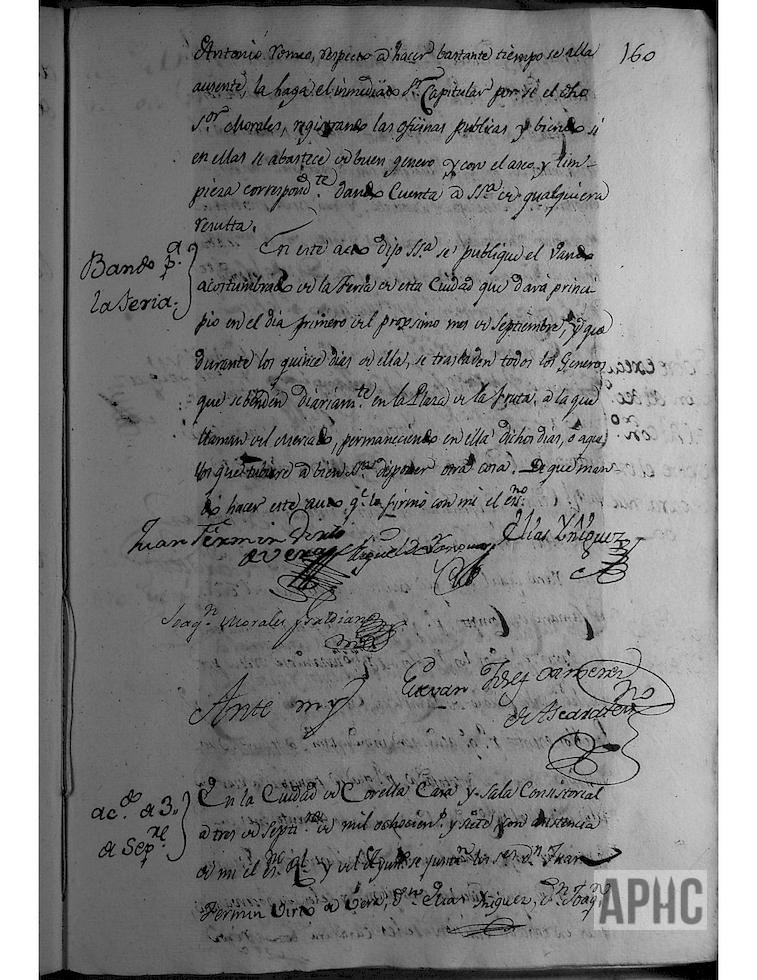 160
Antonio        respecto a hacer bastante tiempo se alla
ausente, la haga el inmediato Sr. Capitular por si el dho
Sor Morales, registrando las oficinas publicas y biendo si
en ellas se abastece de buen genero y con el aseo y lim-
pieza correspondte dando Cuenta a SSa de qualquiera
resulta.
Bando pa
la feria.
En este acto dijo SSa se publique el vando
acostumbrado de la feria de esta Ciudad que dará princi-
pio en el dia primero del proximo mes de Septiembre, y que
durante los quince dias de ella, se trasladen todos los Generos
que se benden diariamte en la Plaza de la fruta, a la que
llaman del Mercado, permaneciendo en ella dichos dias, o aque
llos que tubiere a bien SSa disponer otra cosa. De que man-
dó hacer este auto, qe lo firmó con mi el esno
Juan Fermin Virto
de Vera
Miguel de
Elias Yñiguez
Joaqn Morales y
Ante my
Estevan Josef
de Ascarate
no
ac.do de 3
de Sepre
En la Ciudad de Corella Casa y Sala Consistorial
a tres de Septre de mil ochocientos y siete, con asistencia
de mi el esno Rl y del Ayunto se juntan los Ses Dn Juan
Fermin Virto de Vera, Dn Elias Yñiguez, Dn Joaqn
APHC